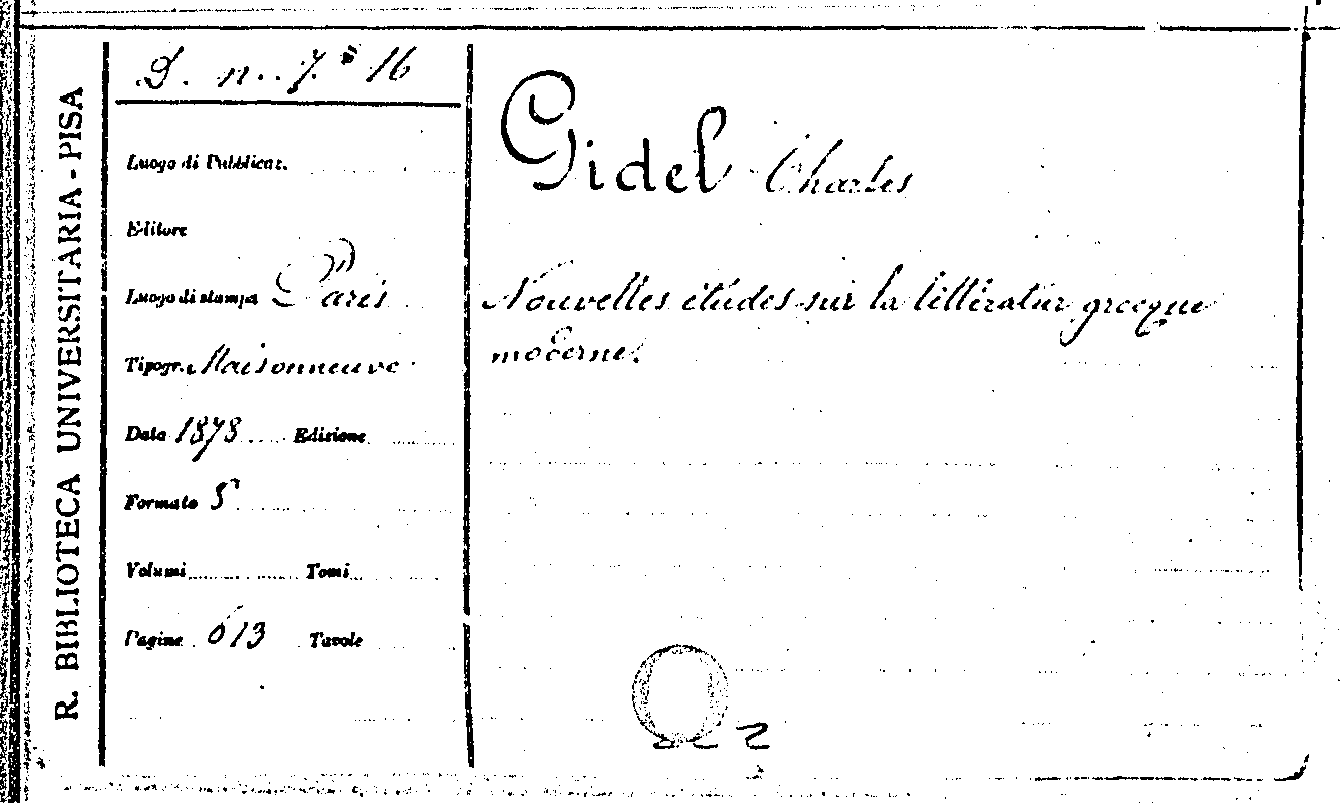 R. BIBLIOTECA UNIVERSITARIA - PISA
S. n. 7. 16
Luogo di Pubblicaz.
Editore
Luogo di stampa Paris
Tipogr. Maisonneuve
Data 1878 Edizione
Formato 8°
Volumi Tomi
Pagine 613 Tavole
Gidel Charles
Nouvelles études sur la littératur grecque
moderne.